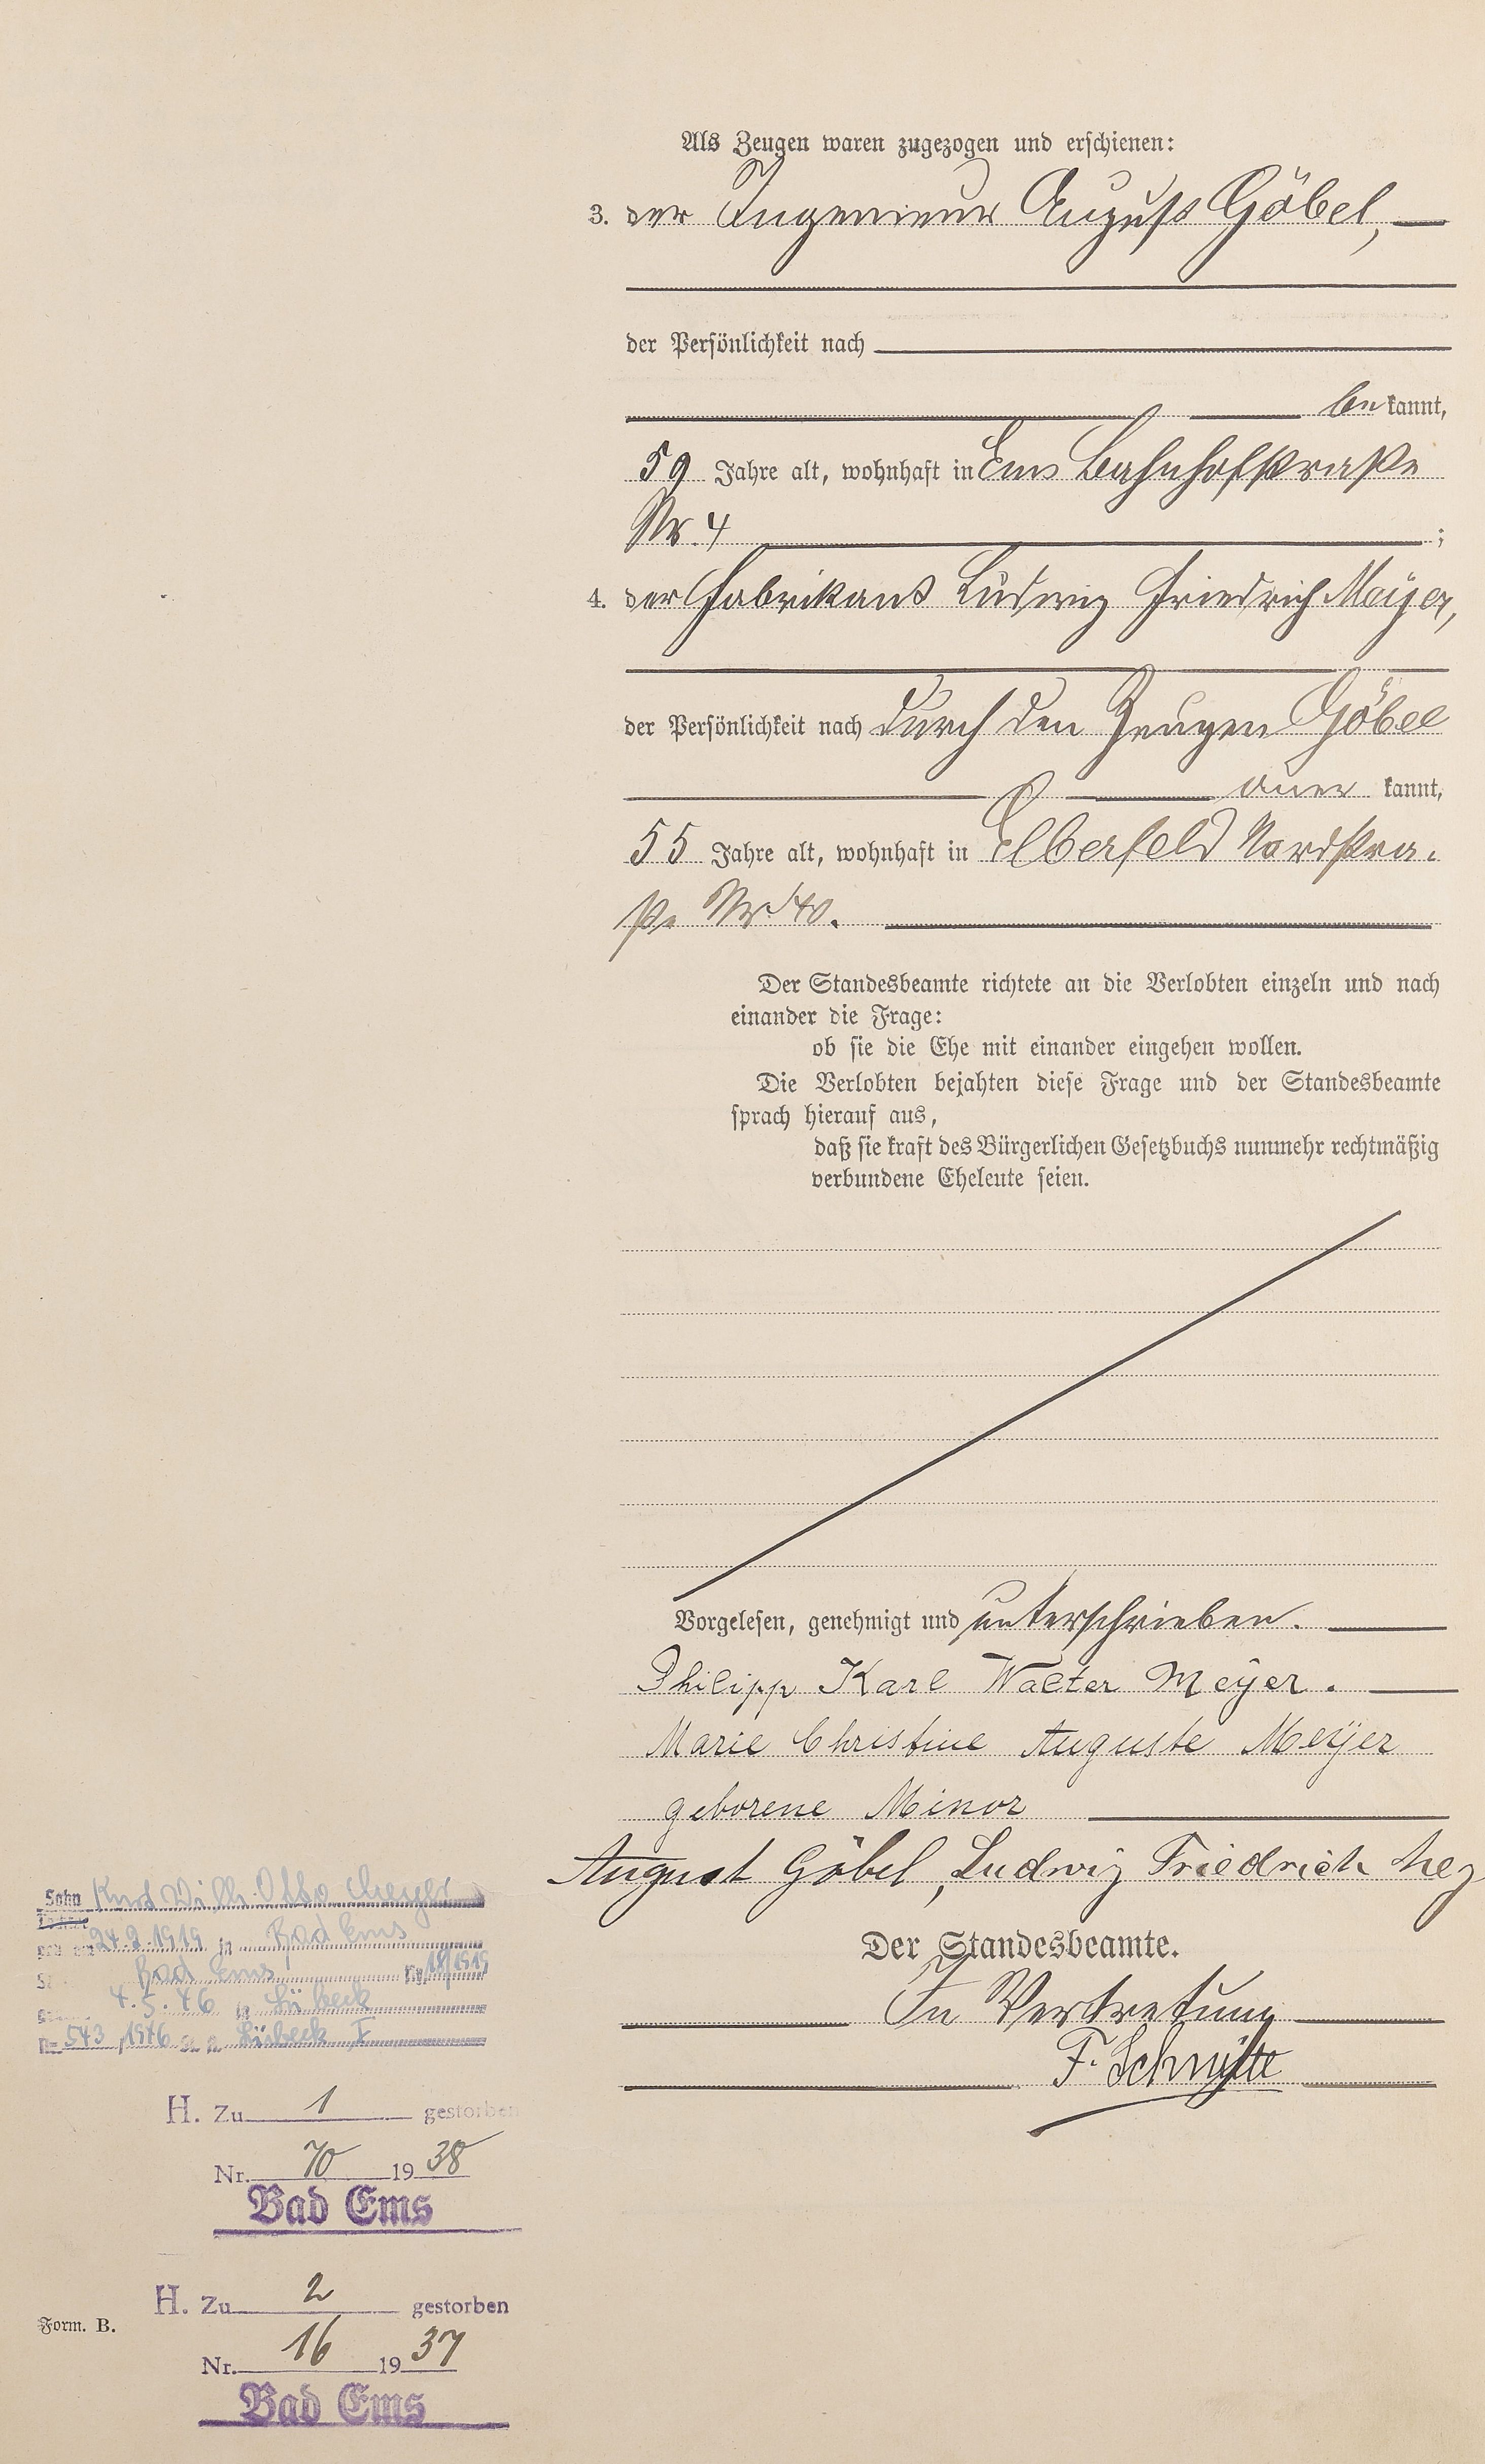 Als Zeugen waren zugezogen und erschienen:
3. der Ingenieur August Göbel,
der Persönlichkeit nach
be kannt,
59 Jahre alt, wohnhaft in Ems Bahnhofstraße
Nr. 4 ;
4. der Fabrikant Ludwig Friedrich Meyer,
der Persönlichkeit nach durch den Zeugen Göbel
aner kannt,
55 Jahre alt, wohnhaft in Elberfeld Nordstra-
ße Nr. 40.
Der Standesbeamte richtete an die Verlobten einzeln und nach
einander die Frage:
ob sie die Ehe mit einander eingehen wollen.
Die Verlobten bejahten diese Frage und der Standesbeamte
sprach hierauf aus,
daß sie kraft des Bürgerlichen Gesetzbuchs nunmehr rechtmäßig
verbundene Eheleute seien.
Vorgelesen, genehmigt und unterschrieben.
Philipp Karl Walter Meyer.
Marie Christine Auguste Meyer
geborene Minor
August Göbel, Ludwig Friedrich Mey
Der Standesbeamte.
In Vertretung
F. Schnütte
Sohn Kurd Willi Otto Meyer
24.2.1919 in Bad Ems
Bad Ems Nr. 18/1919
4.5.46 in Lübeck
543/1946 Lübeck I
H. Zu 1 gestorben
Nr. 70 1938
Bad Ems
H. Zu 2 gestorben
Nr. 16 1937
Bad Ems
Form. B.